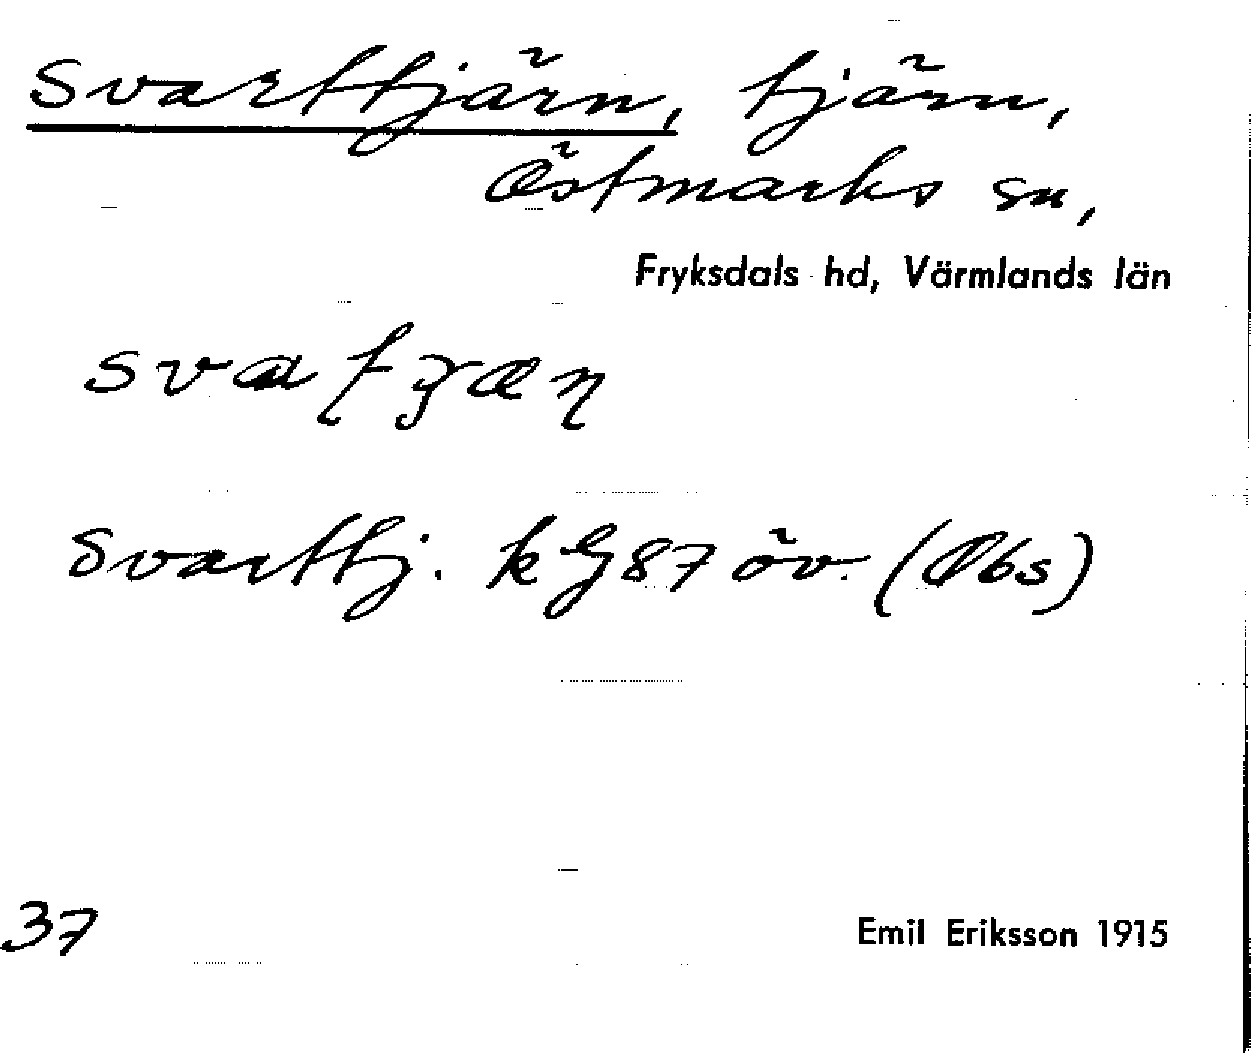 Svarttjärn, tjärn,
Östmarks sn,
Fryksdals hd, Värmlands län
Svarttj. kG87 öv. (Obs)
37
Emil Eriksson 1915